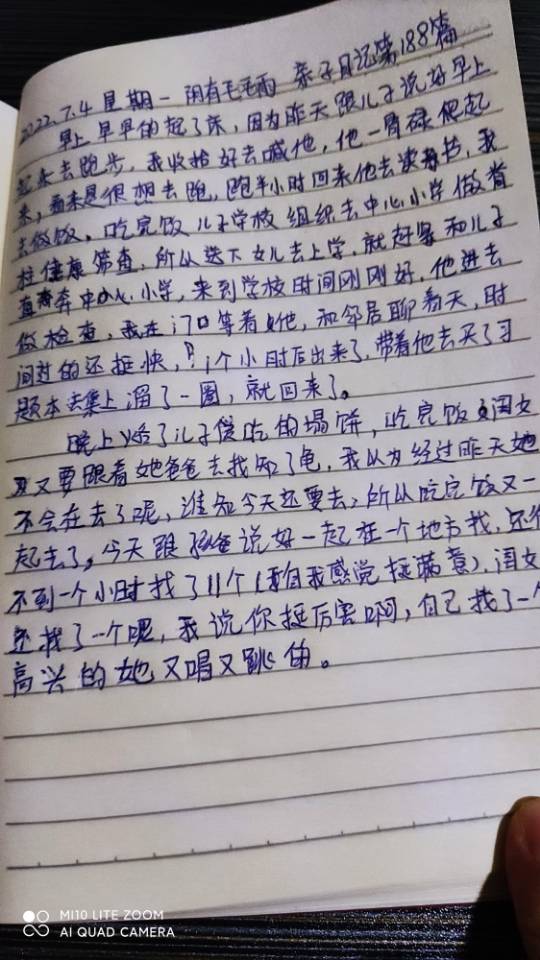 2022.7.4 星期一 阴有毛毛雨 亲子日记第188篇
早上早早的起了床,因为昨天跟儿子说好早上
起来去跑步,我收拾好去喊他,他一骨碌爬起
来,看来是很想去跑,跑半小时回来他去读书,我
去做饭,吃完饭儿子学校组织去中心小学做脊
柱健康筛查,所以送下女儿去上学,就和儿子
直奔中心小学,来到学校时间刚刚好,他进去
做检查,我在门口等着他,和邻居聊着天,时
间过的还挺快,1个小时后出来了,带着他去买了习
题本去集上溜了一圈,就回来了。
晚上烙了儿子馋吃的塌饼,吃完饭闺女
又要跟着她爸爸去找知了龟,我以为经过昨天她
不会在去了呢,谁知今天还要去,所以吃完饭又一
起去了,今天跟爸爸说好一起在一个地方找,还行
不到一个小时找了11个(自我感觉挺满意),闺女
还找了一个呢,我说你挺厉害啊,自己找了一个
高兴的她又唱又跳的。
MI10 LITE ZOOM
AI QUAD CAMERA